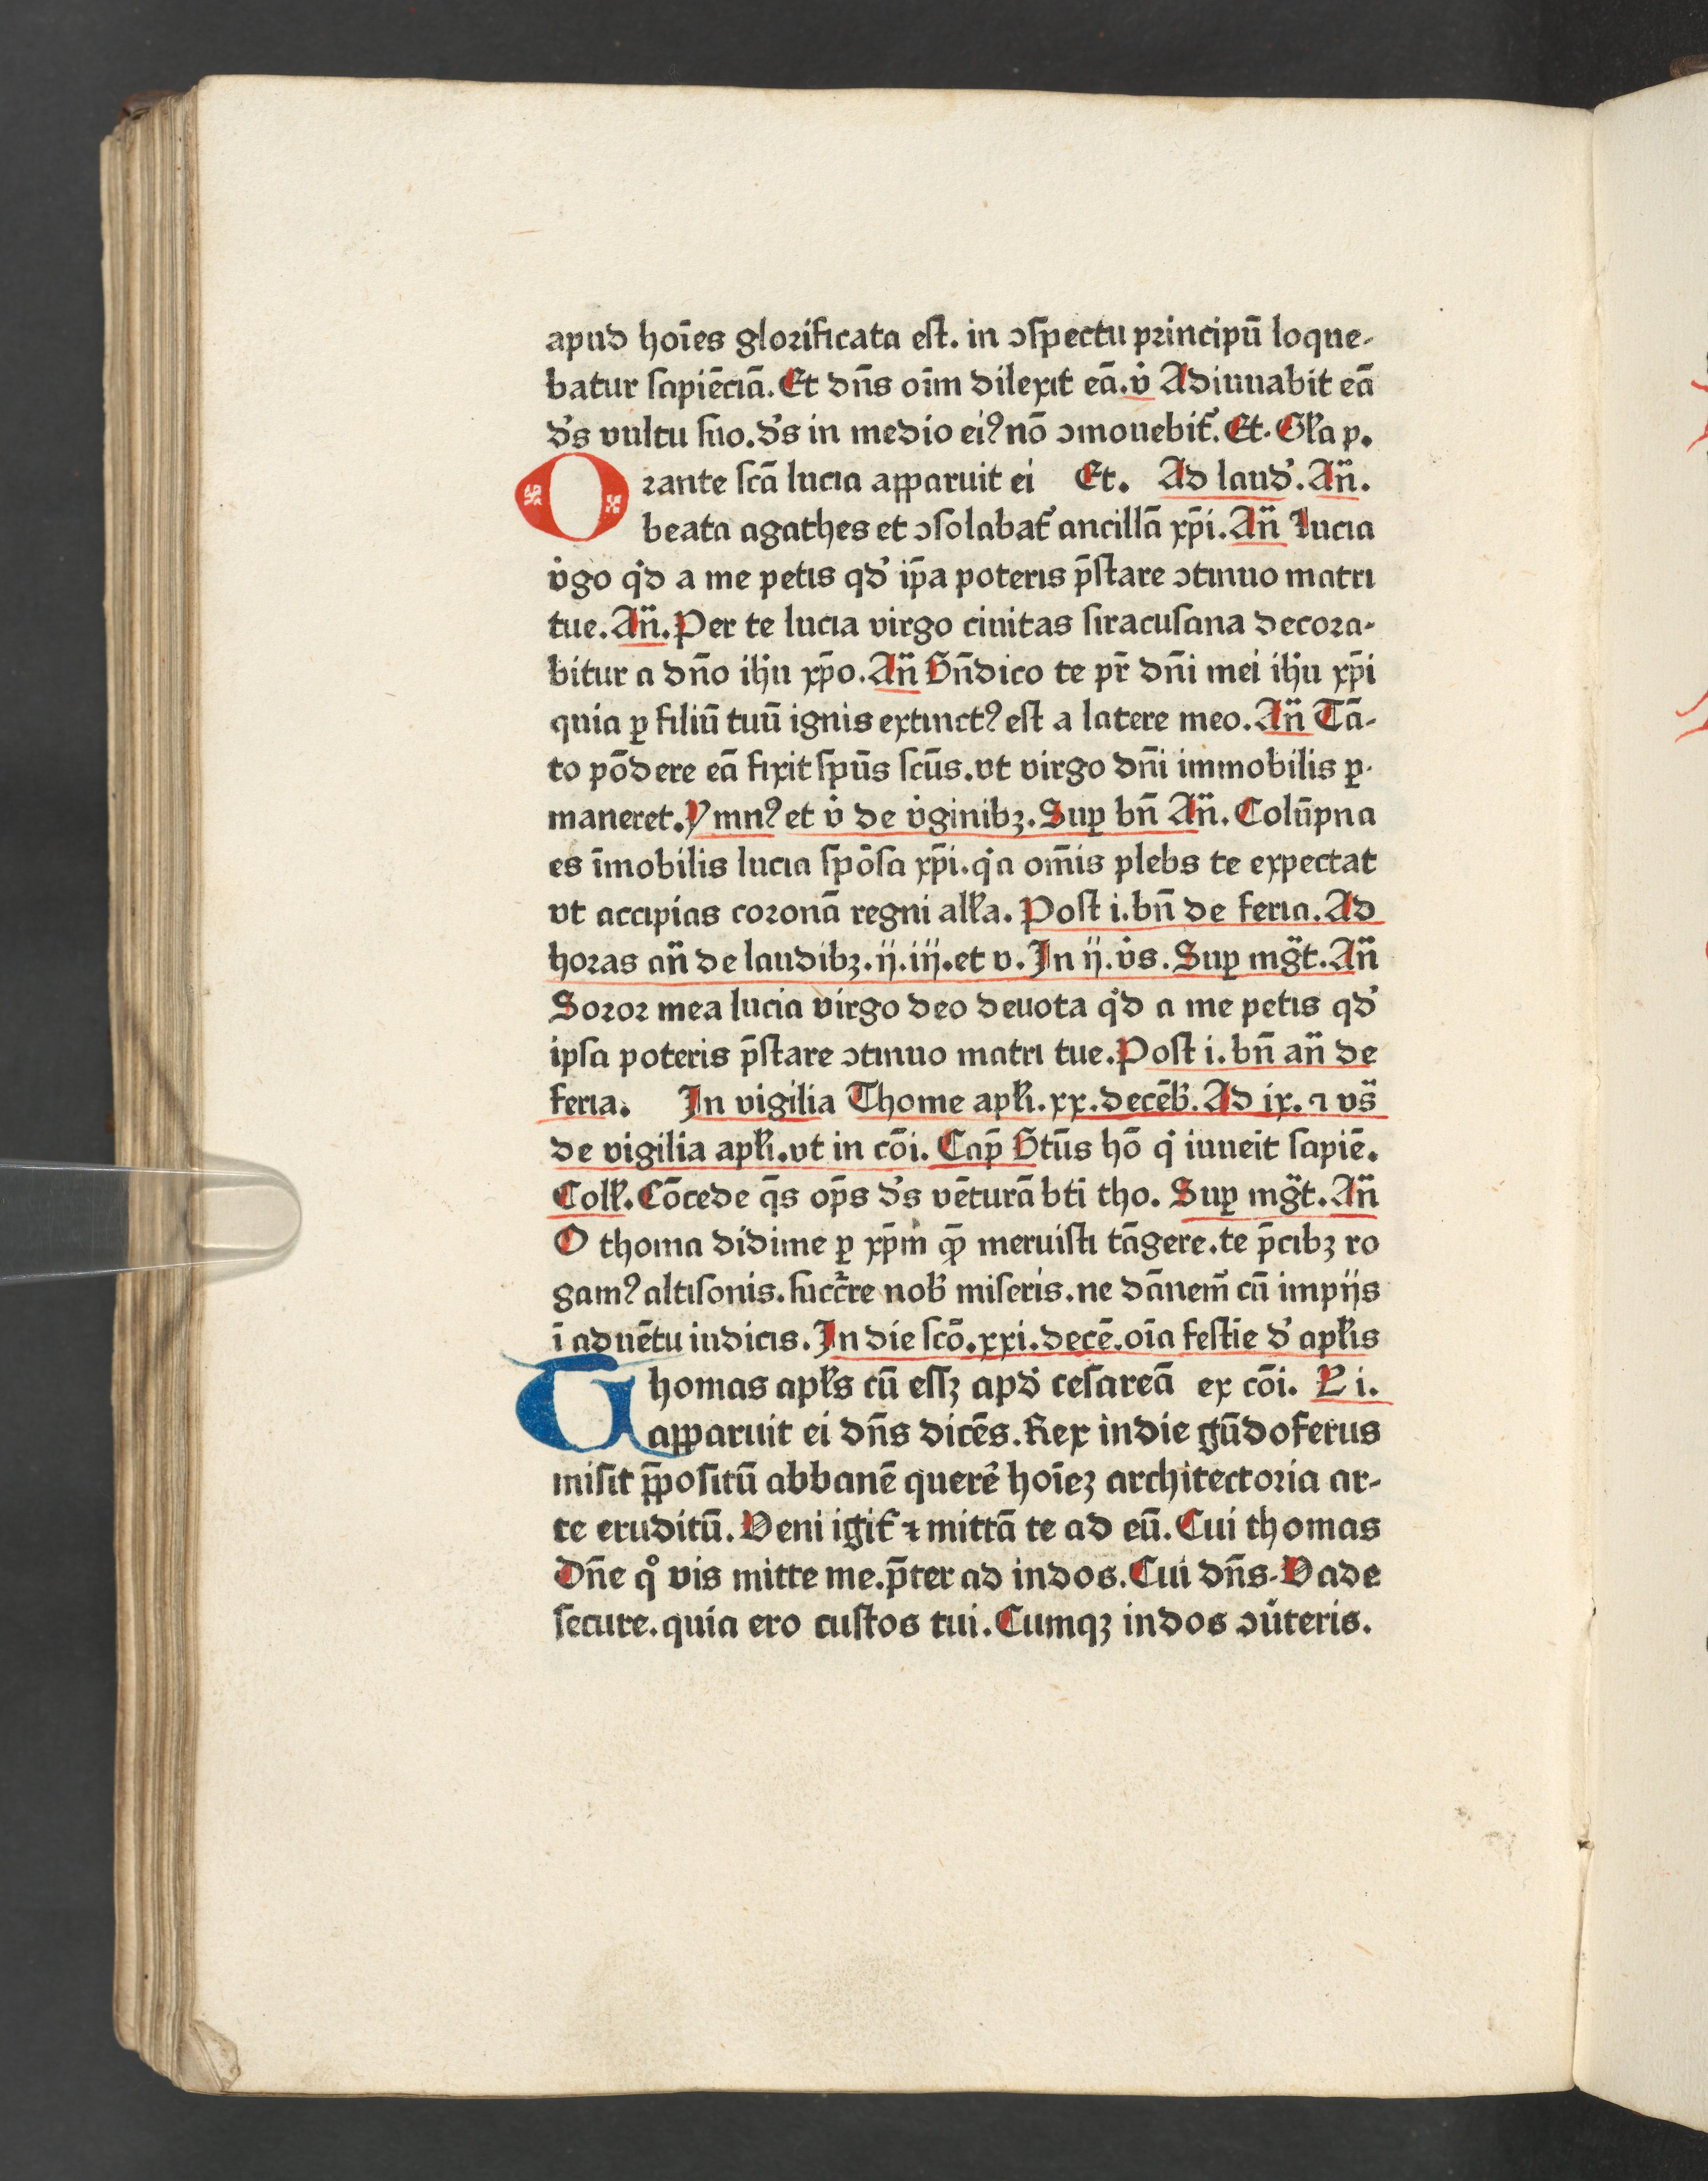 apud hoīes glorificata est. in ɔspectu principū loque-
batur sapiēciā. Et dn̄s oīm dilexit eā. v̓ Adiuuabit eā
d̓s vultu suo. d̓s in medio eiꝰ nō ɔmouebit̓. Et. Gl̓a p.
Orante scā lucia apparuit ei Et. Ad laud̓. An̄.
beata agathes et ɔsolabat̓ ancillā xp̄i. An̄ Lucia
v̓go qͥd a me petis qd̓ ip̄a poteris p̄stare ɔtinuo matri
tue. An̄. Per te lucia virgo ciuitas siracusana decora-
bitur a dn̄o ihū xp̄o. An̄ Bn̄dico te pr̄ dn̄i mei ihū xp̄i
quia ꝑ filiū tuū ignis extinctꝰ est a latere meo. An̄ Tā-
to pōdere eā fixit spūs scūs. vt virgo dn̄i immobilis ꝑ-
maneret. Ymnꝰ et v̓ de v̓ginibꝫ. Suꝑ bn̄ An̄. Colūpna
es īmobilis lucia spōsa xp̄i. qͥa om̄is plebs te expectat
vt accipias coronā regni all̓a. Post i. bn̄ de feria. Ad
horas an̄ de laudibꝫ. ij. iij. et v. In ij. v̓s. Suꝑ mḡt. An̄
Soror mea lucia virgo deo deuota qͥd a me petis qd̓
ipsa poteris p̄stare ɔtinuo matri tue. Post i. bn̄ an̄ de
feria. In vigilia Thome apl̓i. xx. decēb̓. Ad ix. ⁊ vs̄
de vigilia apl̓i. vt in cōi. Cap̄ Btūs hō qͥ iuueit sapiē.
Coll̓. Cōcede q̄s op̄s d̓s vēturā bti tho. Suꝑ mḡt. An̄
O thoma didime ꝑ xp̄m̄ qͥ̄ꝑ meruisti tāgere. te p̄cibꝫ ro
gamꝰ altisonis. succr̄re nob̓ miseris. ne dānem̄ cū impijs
ī aduētu iudicis. In die scō. xxi. decē. oīa festie d̓ apl̓is
Thomas apl̓s cū essꝫ apd̓ cesareā ex cōi. L i.
apparuit ei dn̄s dicēs. Rex indie gūdoferus
misit p̄positū abbanē querē̓ hoīeꝫ architectoria ar-
te eruditū. Veni igit̓ ⁊ mittā te ad eū. Cui thomas
Dn̄e qͦ vis mitte me. p̄ter ad indos. Cui dn̄s. Vade
secure. quia ero custos tui. Cumqꝫ indos ɔūteris.